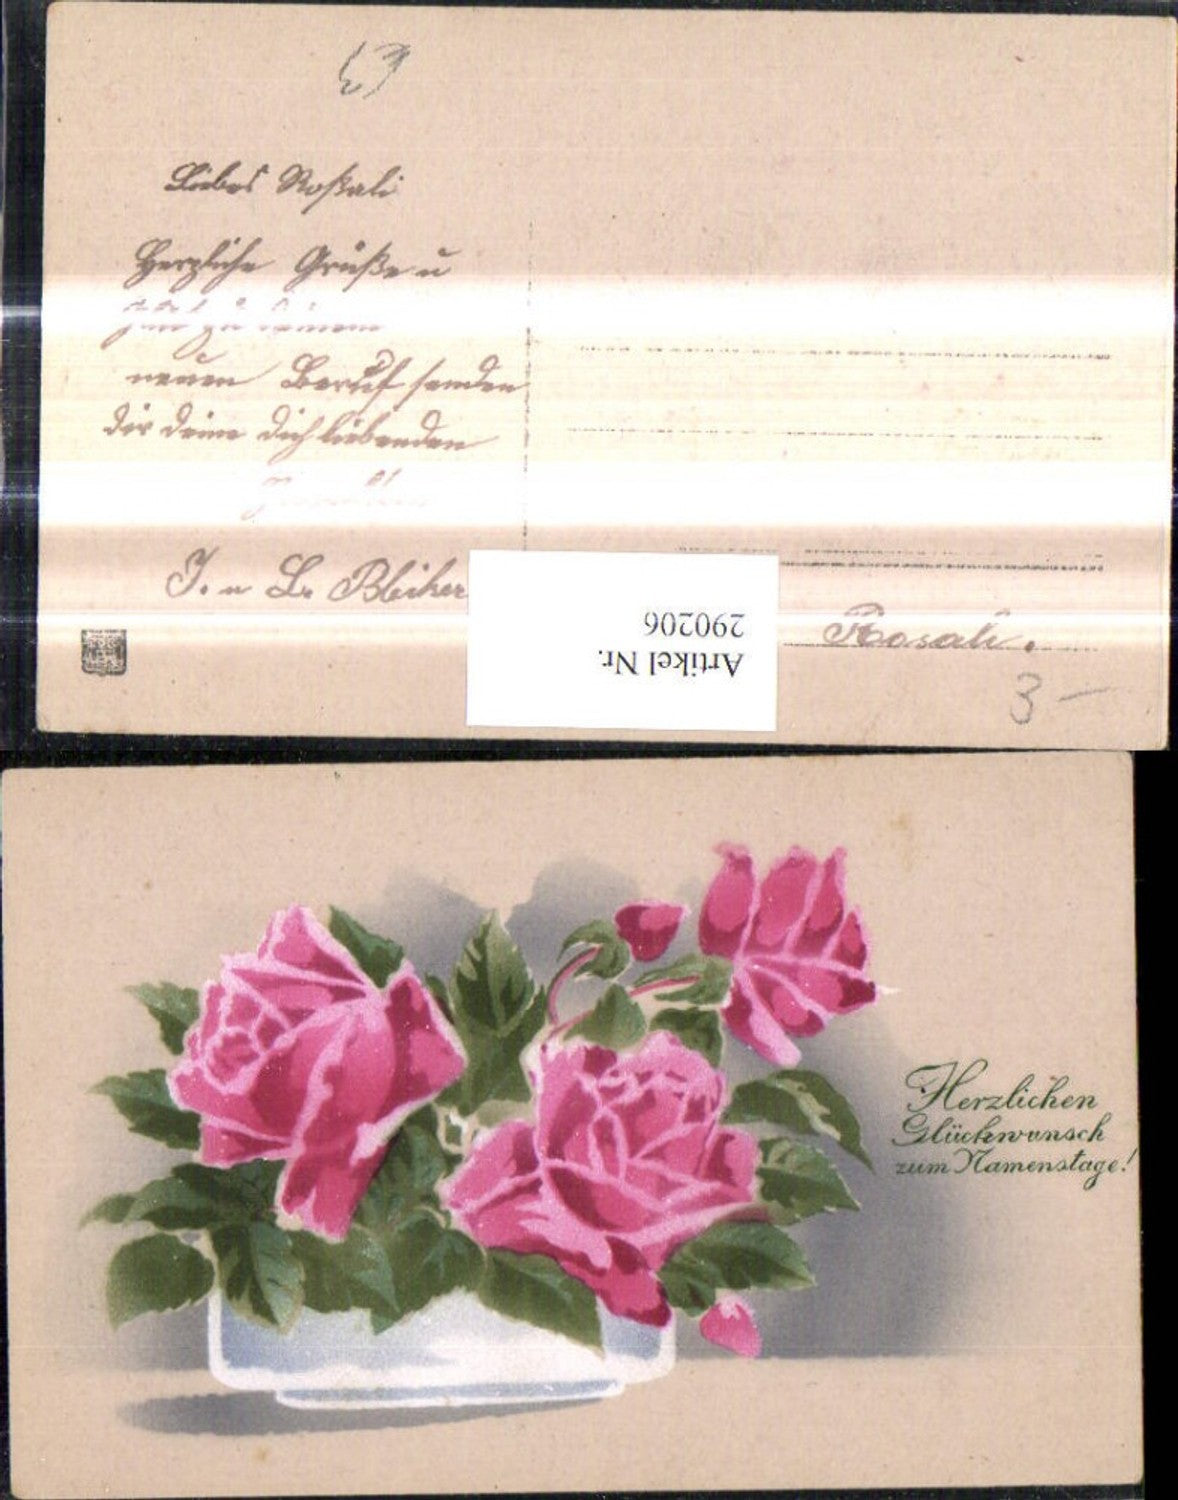 Liebes Roßali
Herzliche Grüße u
zu deinem
neuen Beruf senden
dir deine dich liebenden
J. u L. Bleiker
Rosali.
3 –
Artikel Nr.
290206
Herzlichen
Glückwunsch
zum Namenstage!